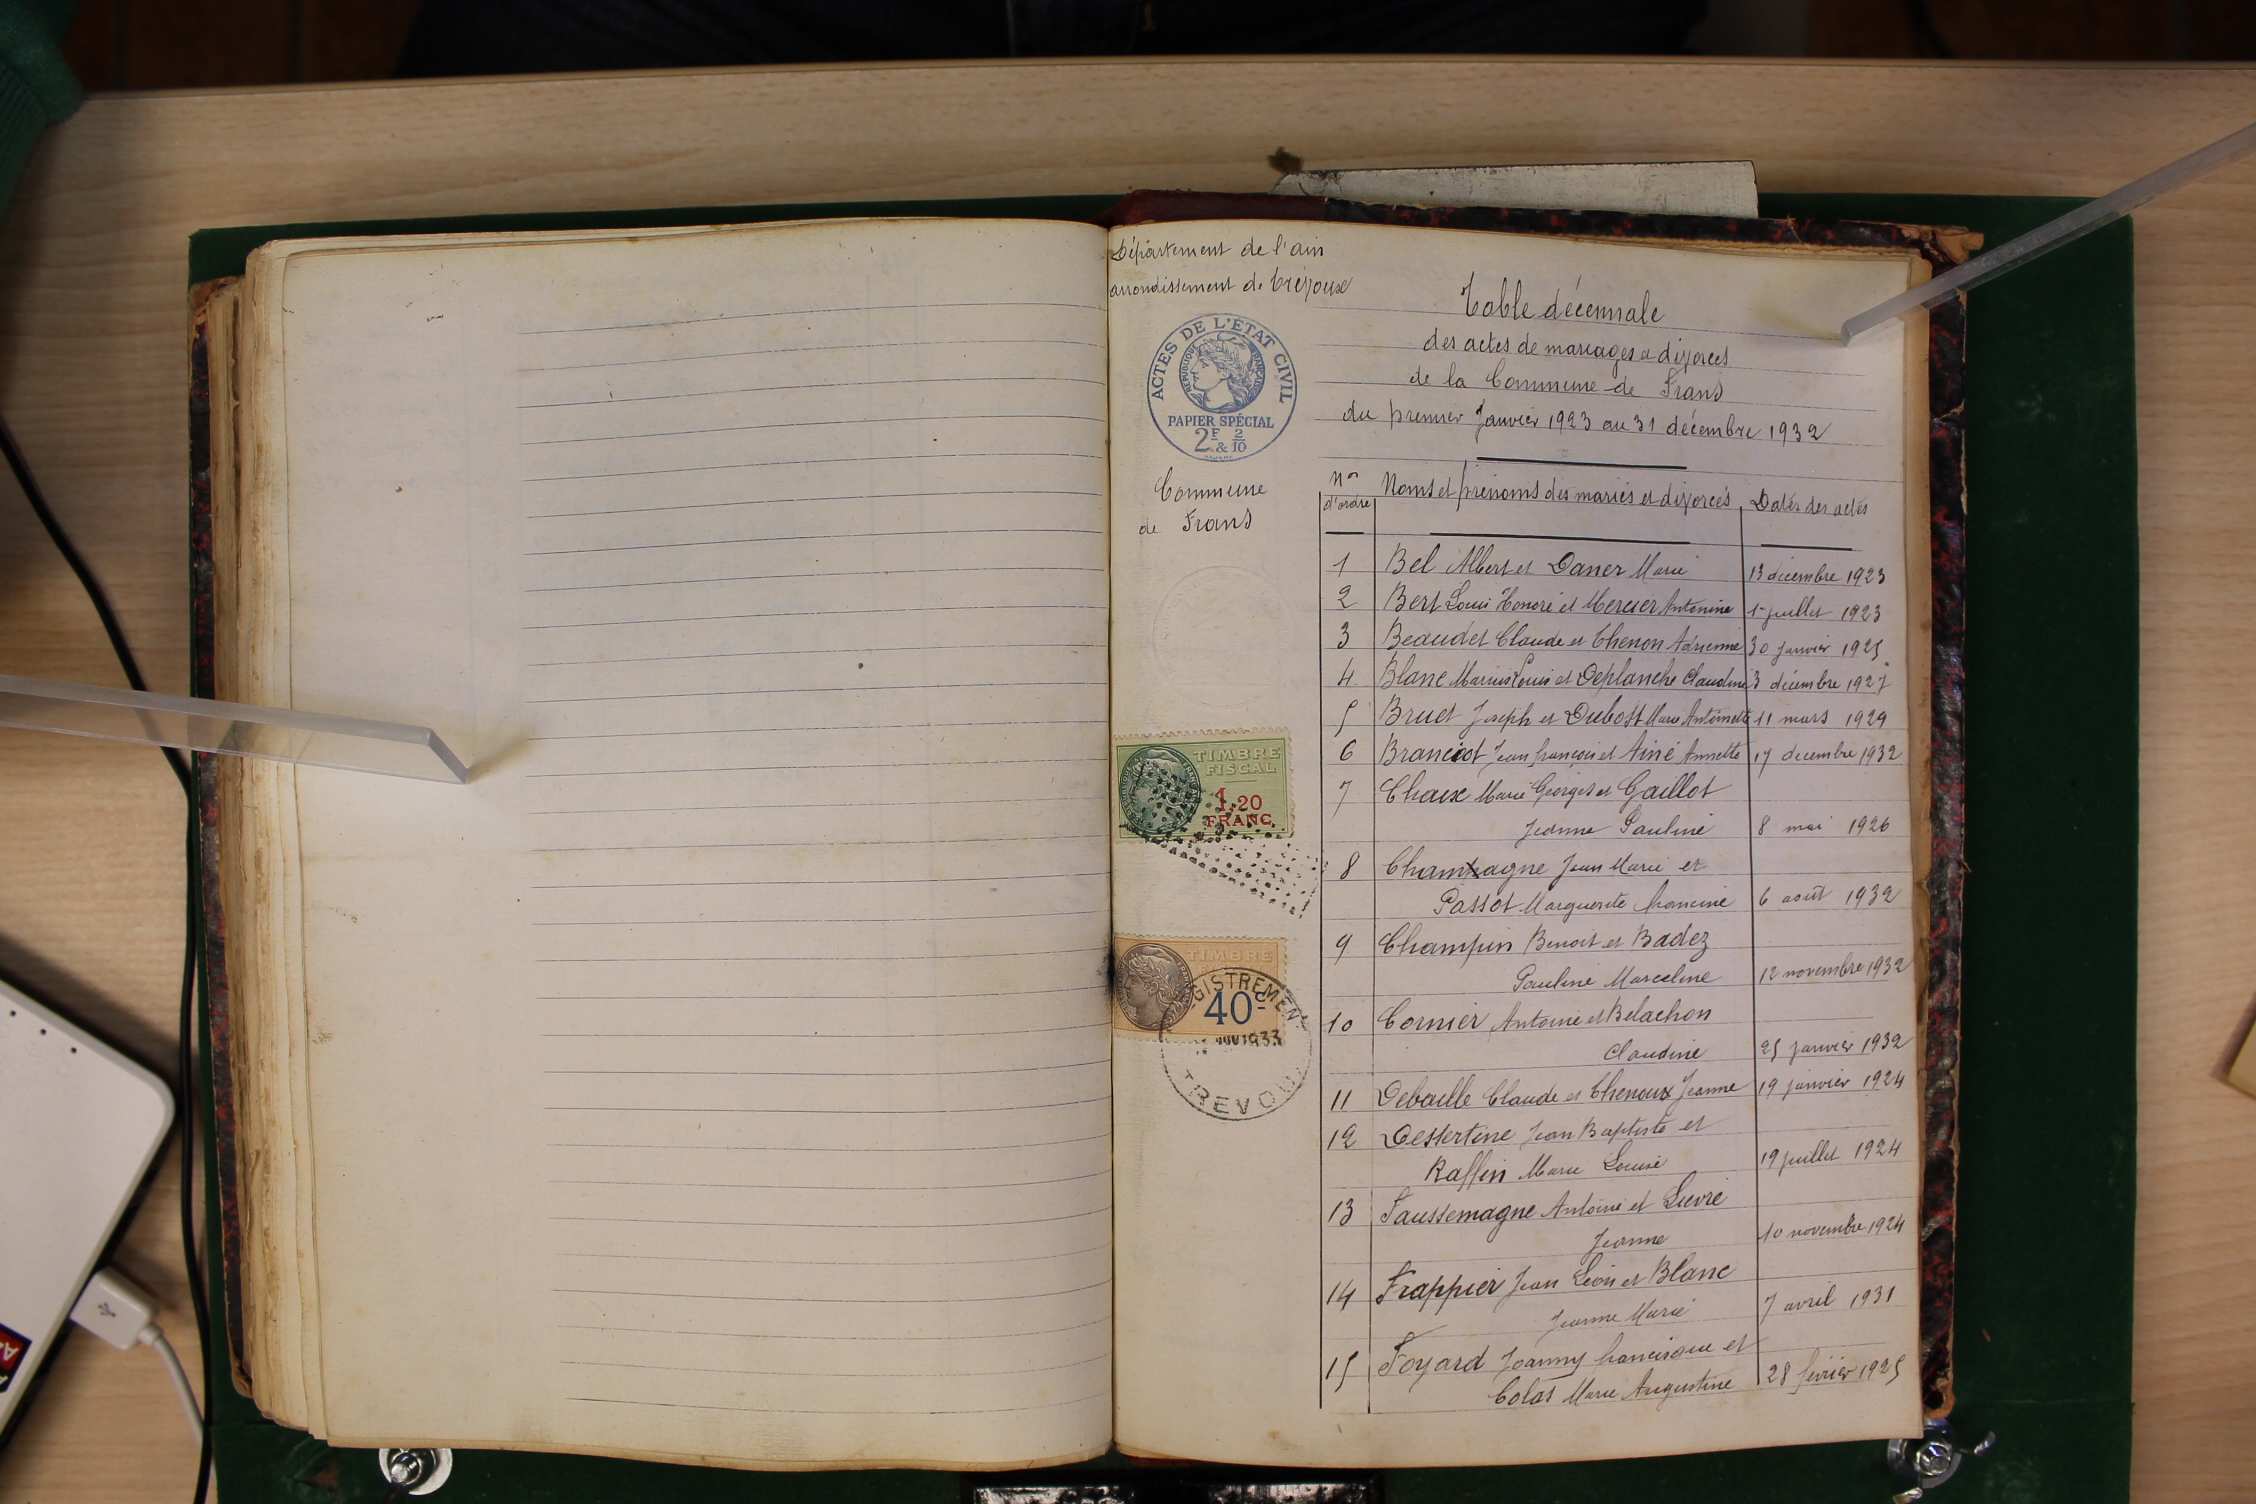 Département de l'ain
arrondissement de Trévoux
ACTES DE L'ÉTAT CIVIL
RÉPUBLIQUE FRANÇAISE
PAPIER SPÉCIAL
2F & 2/10
Commune
de Frans
TIMBRE
FISCAL
1.20
FRANC
TIMBRE
40c
GISTREMEN
1933
TREVOU
Table décennale
des actes de mariages et divorces
de la Commune de Frans
du premier Janvier 1923 au 31 décembre 1932
Nos d'ordre Noms et prénoms des mariés et divorcés Dates des actes
1 Bel Albert et Daner Marie 13 décembre 1923
2 Bert Louis Honoré et Mercier Antonine 1er juillet 1923
3 Beaudet Claude et Chenon Adrienne 30 janvier 1925
4 Blanc Marius Louis et Deplanche Claudine 3 décembre 1927
5 Bruet Joseph et Dubost Marie Antoinette 11 mars 1929
6 Branciot Jean françois et Ainé Annette 17 décembre 1932
7 Chaix Marie Georges et Gaillot
Jeanne Pauline 8 mai 1926
8 Champagne Jean Marie et
Passot Marguerite francine 6 août 1932
9 Champin Benoit et Badez
Pauline Marceline 12 novembre 1932
10 Cornier Antoine et Belachon
Claudine 25 janvier 1932
11 Debaille Claude et Chenoux Jeanne 19 janvier 1924
12 Dessertine Jean Baptiste et
Raffin Marie Louise 19 juillet 1924
13 Faussemagne Antoine et Lievre
Jeanne 10 novembre 1924
14 Frappier Jean Léon et Blanc
Jeanne Marie 7 avril 1931
15 Foyard Joanny francisque et
Colas Marie Augustine 28 février 1925